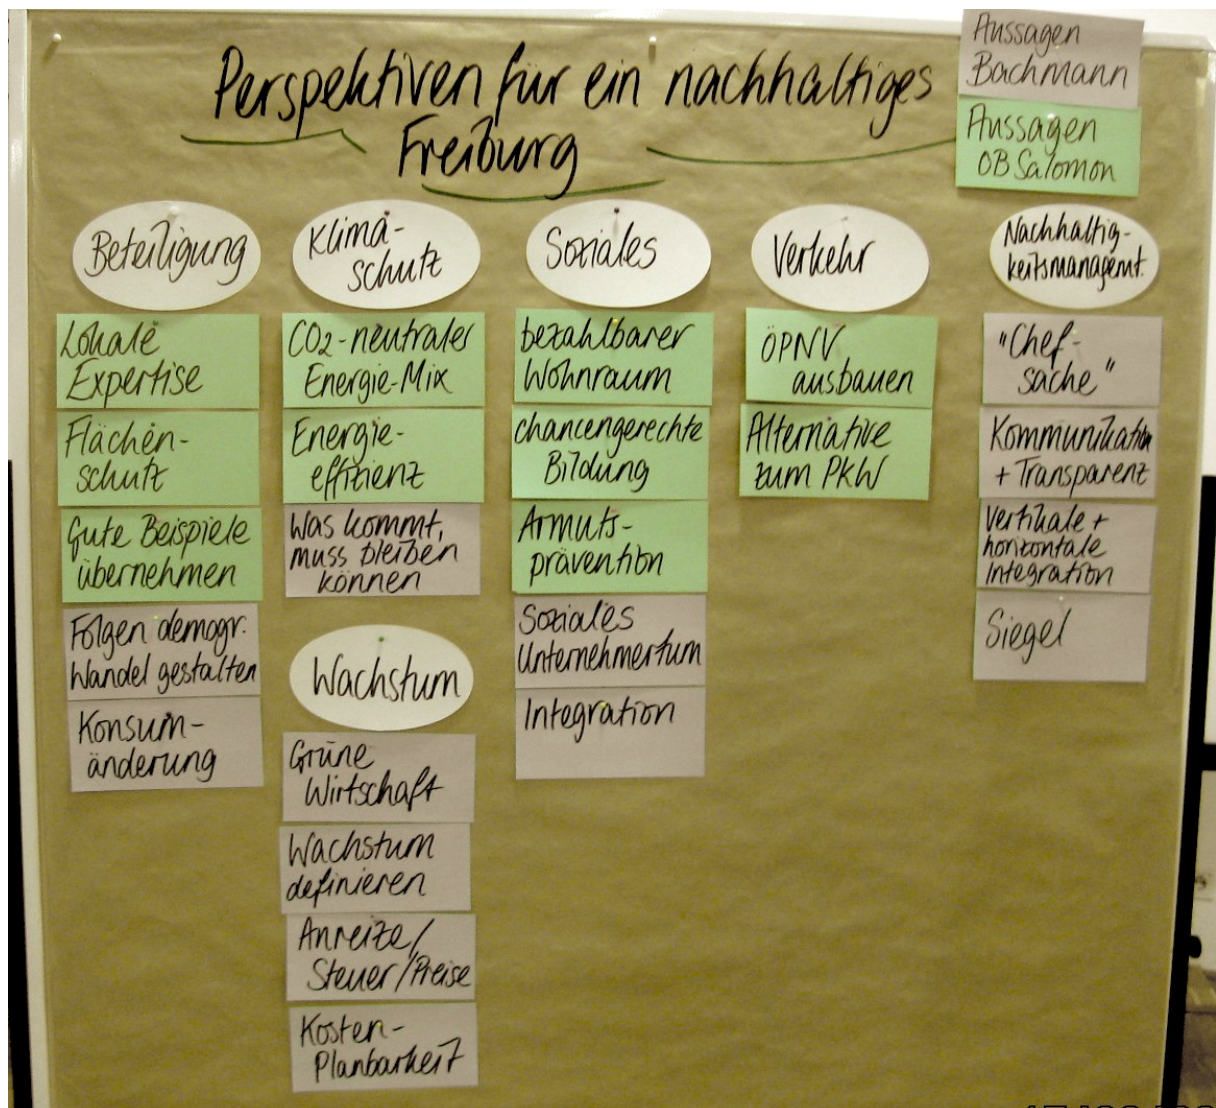 Perspektiven für ein nachhaltiges
Freiburg
Aussagen
Bachmann
Aussagen
OB Salomon
Beteiligung
Lokale
Expertise
Flächen-
schutz
Gute Beispiele
übernehmen
Folgen demogr.
Wandel gestalten
Konsum-
änderung
Klima-
schutz
CO2-neutraler
Energie-Mix
Energie-
effizienz
Was kommt,
muss bleiben
können
Wachstum
Grüne
Wirtschaft
Wachstum
definieren
Anreize/
Steuer/Preise
Kosten-
Planbarkeit
Soziales
bezahlbarer
Wohnraum
chancengerechte
Bildung
Armuts-
prävention
Soziales
Unternehmertum
Integration
Verkehr
ÖPNV
ausbauen
Alternative
zum PKW
Nachhaltig-
keitsmanagemt.
"Chef-
sache"
Kommunikation
+ Transparenz
Vertikale +
horizontale
Integration
Siegel